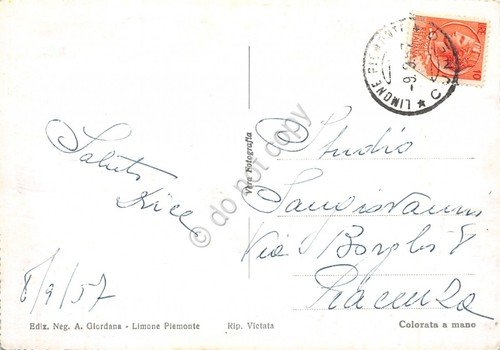 LIMONE PIEMONTE
CUNEO
10
Saluti
Studio
Sangiovanni
Via Borghi 8
Piacenza
8/9/57
Vera Fotografia
do not copy
Ediz. Neg. A. Giordana - Limone Piemonte
Rip. Vietata
Colorata a mano